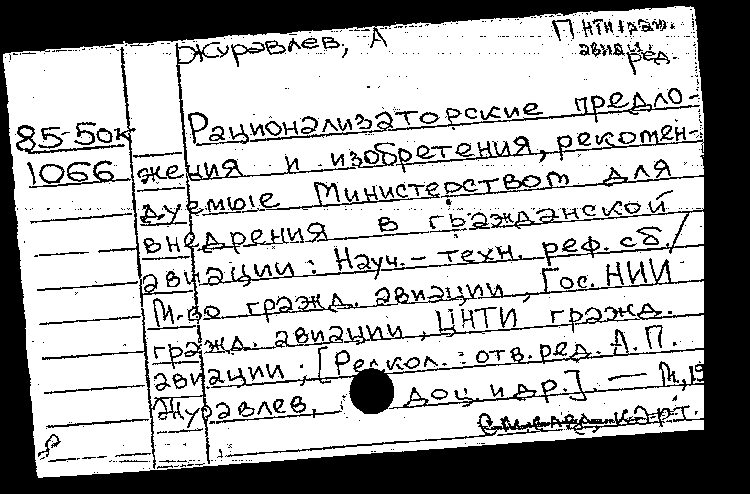 Журавлев, А
П НТИ граж.
авиац.
ред.
85-50к Рационализаторские предло-
1066 жения и изобретения, рекомен-
дуемые Министерством для
внедрения в гражданской
авиации: Науч.-техн. реф. сб. /
М-во гражд. авиации, Гос. НИИ
гражд. авиации, ЦНТИ гражд.
авиации; [Редкол.: отв. ред. А. П.
Журавлев, доц. и др.]. — М., 19
карт.